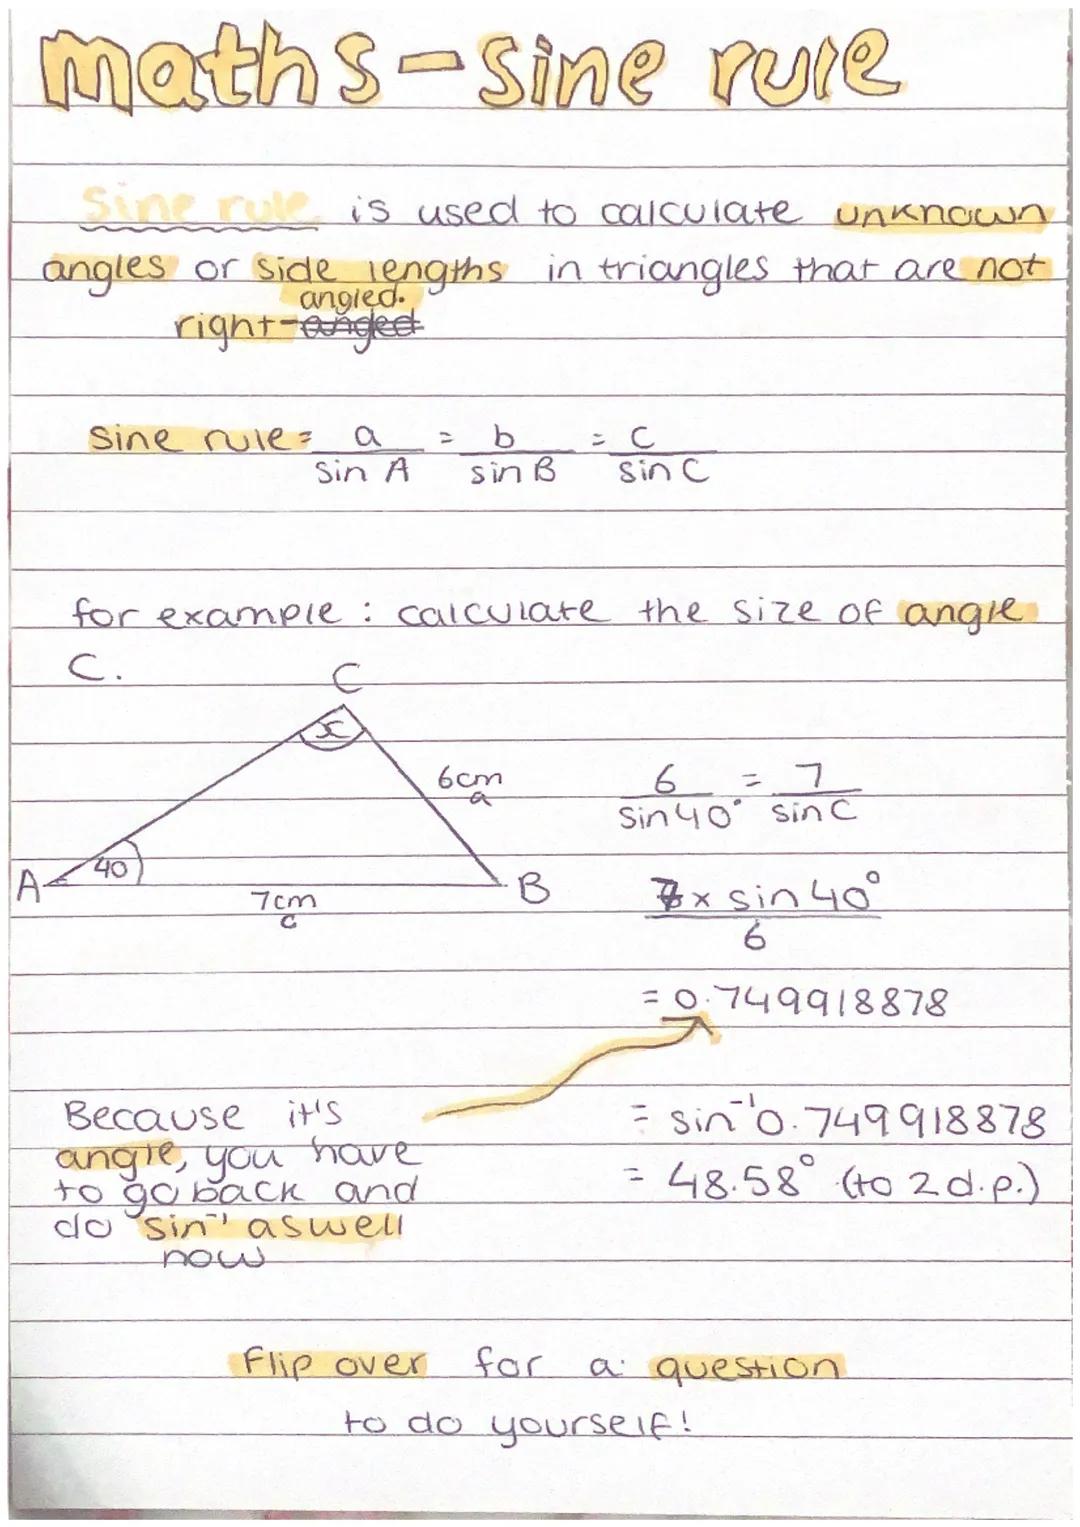 maths-sine rule
sine rule is used to calculate unknown
angles or side lengths in triangles that are not
angled.
right-anged
sine rule = a/sin A = b/sin B = c/sin C
for example : calculate the size of angle
C.
C
x
6cm
a
6/sin40° = 7/sinC
A
40
B
7cm
c
7 x sin40°
6
= 0.749918878
Because it's
angle, you have
to go back and
do sin⁻¹ aswell
now
= sin⁻¹0.749918878
= 48.58° (to 2d.p.)
Flip over for a question
to do yourself!